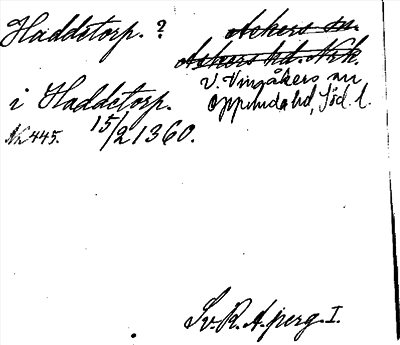 Haddetorp. ?
Ackers sn.
Ackers hd. Nrk.
V. Vingåkers sn
Oppunda hd, Söd. l.
i Haddetorp.
NR 445. 15/2 1360.
Sv. R. A. perg. I.